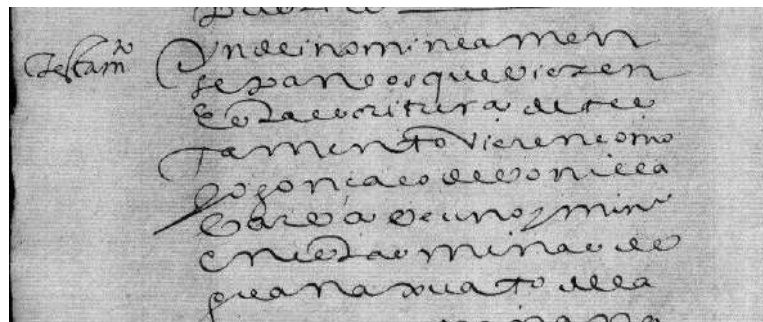 Testamto
Yn dei nomine amen
sepan los que vieren
esta escritura de tes
tamento vieren como
yo gonçalo de bonilla
barba vezino y miner
en estas minas de
guanaxuato de la